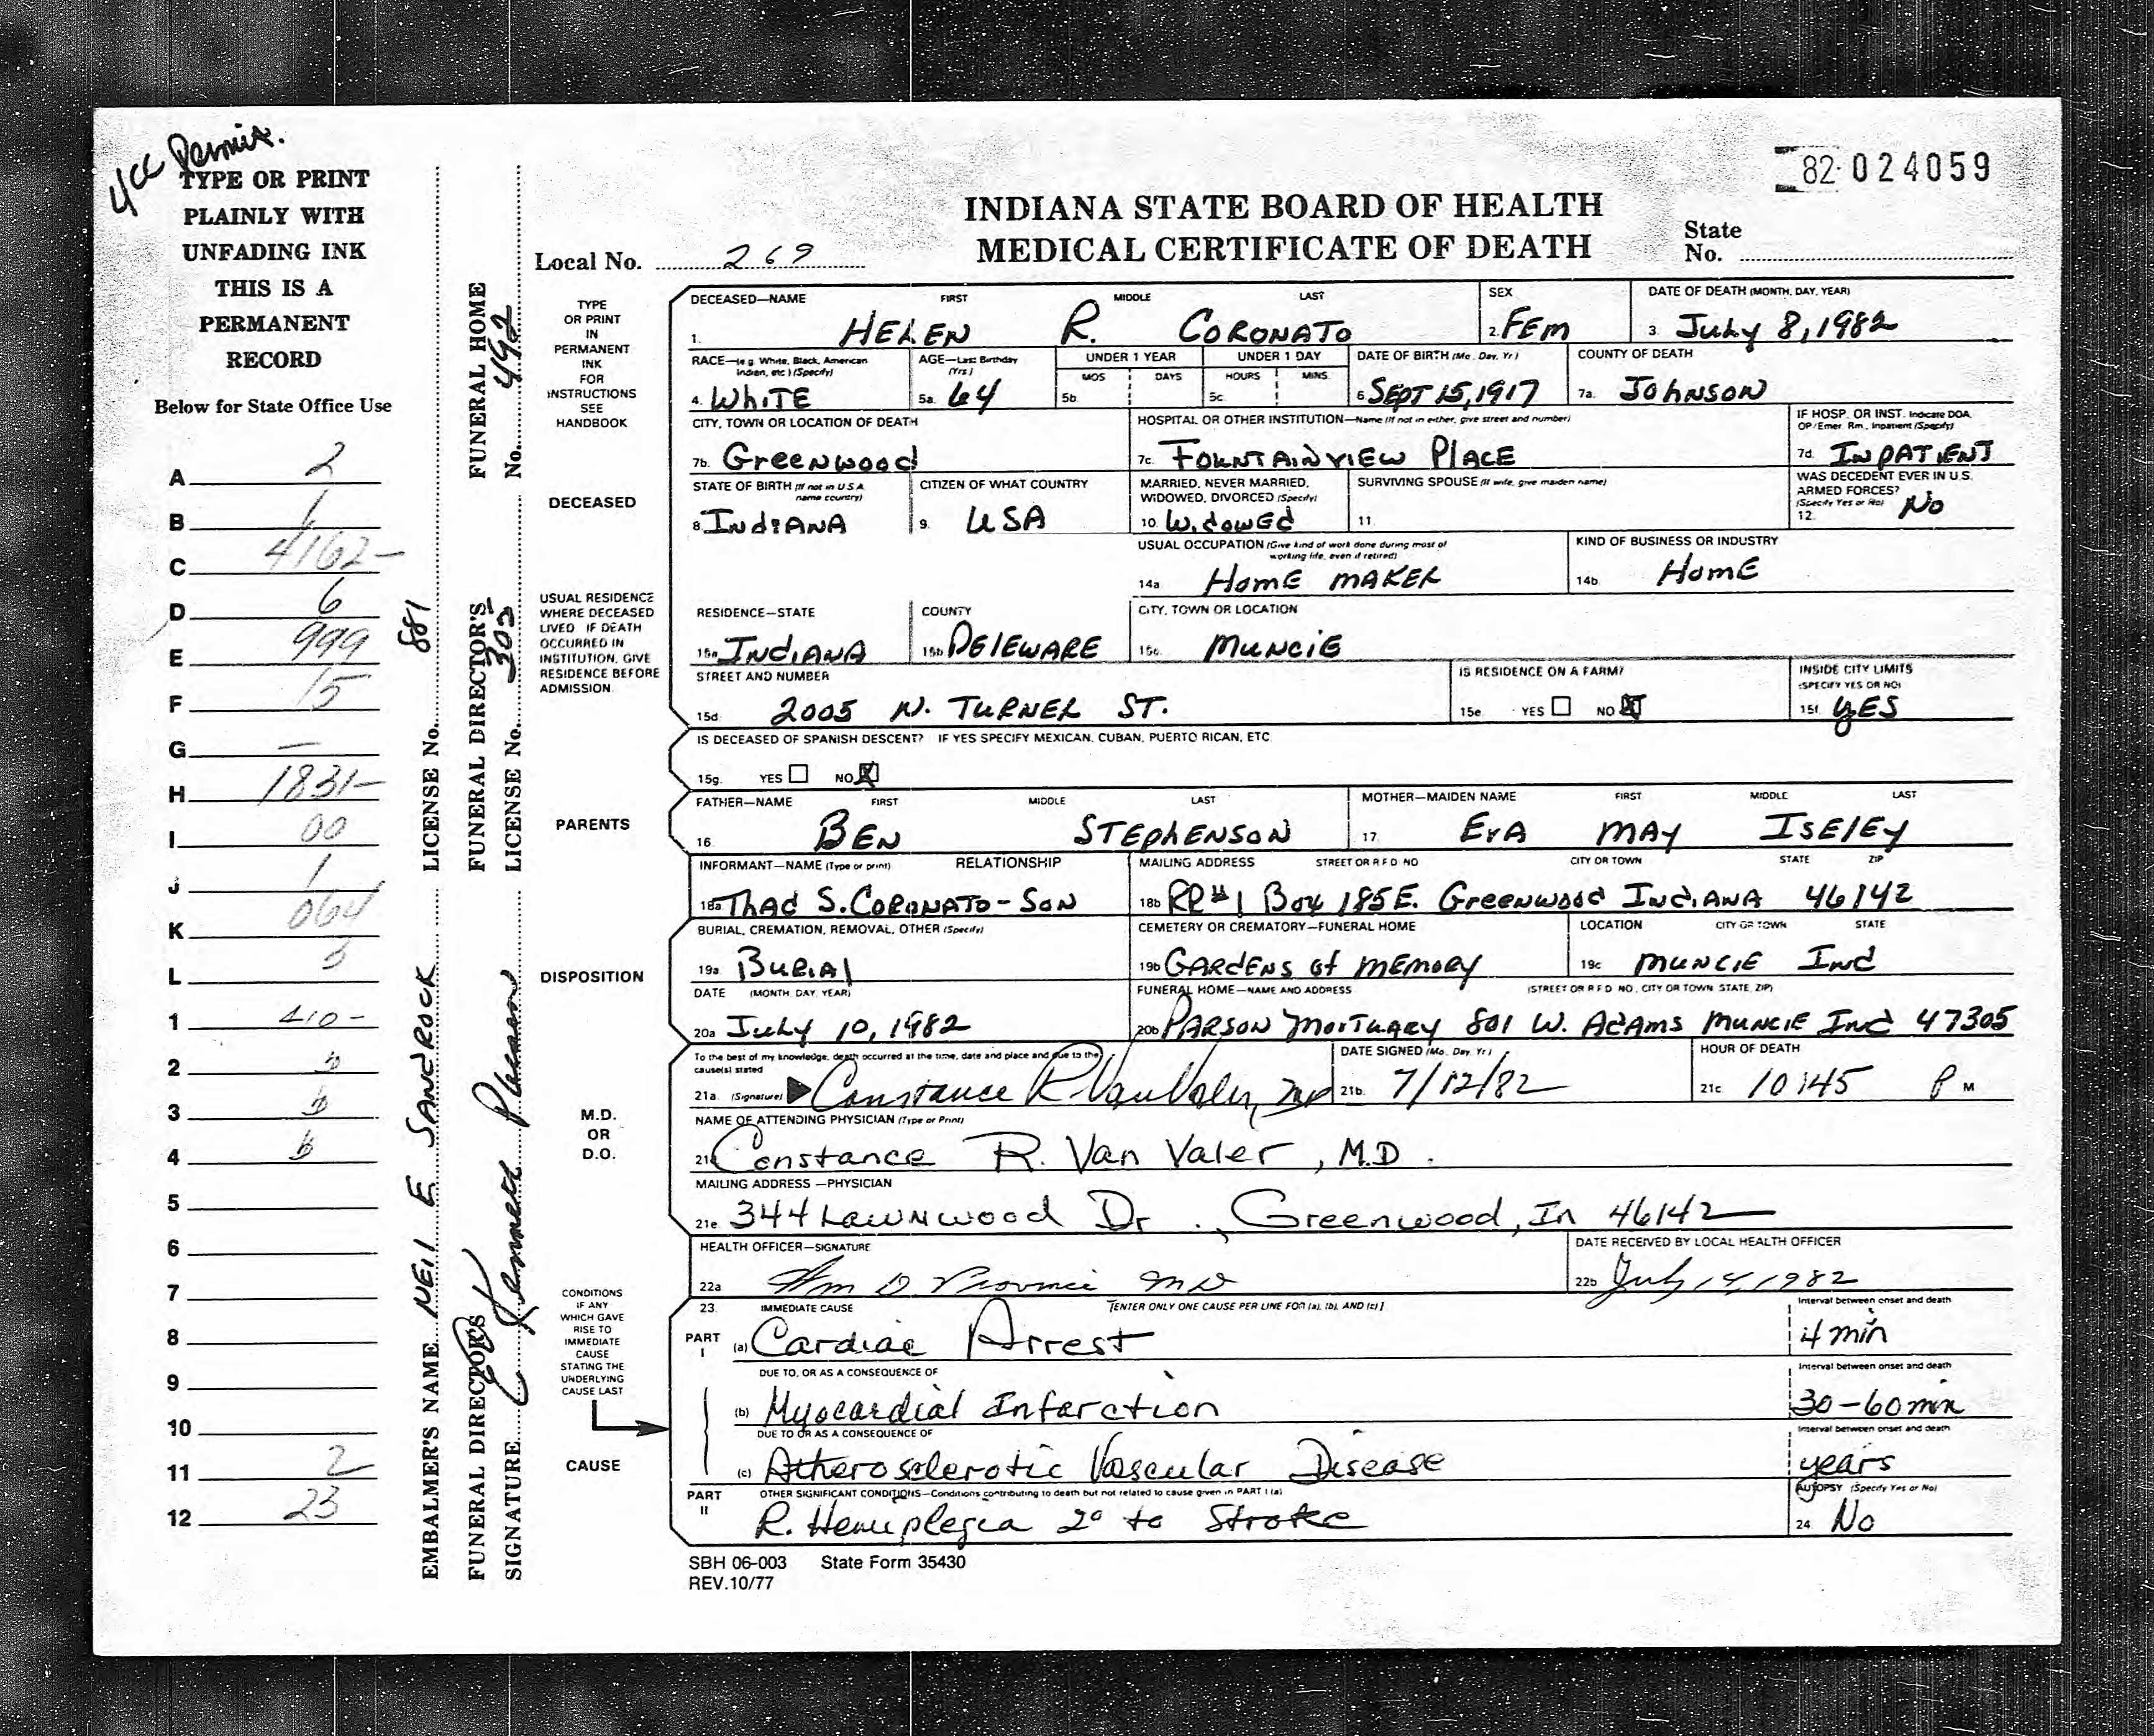 4cc Permit.
TYPE OR PRINT
PLAINLY WITH
UNFADING INK
THIS IS A
PERMANENT
RECORD
Below for State Office Use
A 2
B 1
C 4162-
D 6
E 999
F 15
G —
H 1831-
I 00
J 1
K 064
L 3
1 410-
2
3
4
5
6
7
8
9
10
11 2
12 23
EMBALMER'S NAME NEIL E SANDROCK LICENSE No. 881
FUNERAL DIRECTOR'S SIGNATURE Kenneth
FUNERAL DIRECTOR'S LICENSE No. 305
FUNERAL HOME No. 492
82-024059
INDIANA STATE BOARD OF HEALTH
MEDICAL CERTIFICATE OF DEATH
State
No.
Local No. 269
TYPE
OR PRINT
IN
PERMANENT
INK
FOR
INSTRUCTIONS
SEE
HANDBOOK
DECEASED
USUAL RESIDENCE
WHERE DECEASED
LIVED IF DEATH
OCCURRED IN
INSTITUTION, GIVE
RESIDENCE BEFORE
ADMISSION
PARENTS
DISPOSITION
M.D.
OR
D.O.
CONDITIONS
IF ANY
WHICH GAVE
RISE TO
IMMEDIATE
CAUSE
STATING THE
UNDERLYING
CAUSE LAST
CAUSE
DECEASED—NAME FIRST MIDDLE LAST
1. HELEN R. CORONATO
SEX
2. FEM
DATE OF DEATH (MONTH, DAY, YEAR)
3. July 8, 1982
RACE—(e.g. White, Black, American
Indian, etc.) (Specify)
4. WhiTE
AGE—Last Birthday
(Yrs.)
5a. 64
UNDER 1 YEAR
MOS DAYS
5b.
UNDER 1 DAY
HOURS MINS
5c.
DATE OF BIRTH (Mo. Day, Yr.)
6. SEPT 15, 1917
COUNTY OF DEATH
7a. JOhNSON
CITY, TOWN OR LOCATION OF DEATH
7b. GreeNwood
HOSPITAL OR OTHER INSTITUTION—Name (If not in either, give street and number)
7c. FOUNTAINVIEW PlACE
IF HOSP. OR INST. Indicate DOA,
OP/Emer. Rm., Inpatient (Specify)
7d. INPATIENT
STATE OF BIRTH (If not in U.S.A.
name country)
8. INdiANA
CITIZEN OF WHAT COUNTRY
9. USA
MARRIED, NEVER MARRIED,
WIDOWED, DIVORCED (Specify)
10. WidowEd
SURVIVING SPOUSE (If wife, give maiden name)
11.
WAS DECEDENT EVER IN U.S.
ARMED FORCES?
(Specify Yes or No)
12. No
USUAL OCCUPATION (Give kind of work done during most of
working life, even if retired)
14a. HomE mAKER
KIND OF BUSINESS OR INDUSTRY
14b. HomE
RESIDENCE—STATE
15a. INdiANA
COUNTY
15b. DElEWARE
CITY, TOWN OR LOCATION
15c. MUNCiE
STREET AND NUMBER
15d. 2005 N. TURNER ST.
IS RESIDENCE ON A FARM?
15e. YES ☐ NO ☒
INSIDE CITY LIMITS
(SPECIFY YES OR NO)
15f. yES
IS DECEASED OF SPANISH DESCENT? IF YES SPECIFY MEXICAN, CUBAN, PUERTO RICAN, ETC
15g. YES ☐ NO ☒
FATHER—NAME FIRST MIDDLE LAST
16. BEN STEPhENSON
MOTHER—MAIDEN NAME FIRST MIDDLE LAST
17. EvA MAy ISElEy
INFORMANT—NAME (Type or print) RELATIONSHIP
18a. ThAd S. CORONATO - SON
MAILING ADDRESS STREET OR R.F.D. NO CITY OR TOWN STATE ZIP
18b. RR#1 Box 185E. GreeNwood INdiANA 46142
BURIAL, CREMATION, REMOVAL, OTHER (Specify)
19a. BURIAl
CEMETERY OR CREMATORY—FUNERAL HOME
19b. GARdENS of MEMORy
LOCATION CITY OR TOWN STATE
19c. MUNCIE Ind
DATE (MONTH DAY, YEAR)
20a. July 10, 1982
FUNERAL HOME—NAME AND ADDRESS (STREET OR R.F.D. NO., CITY OR TOWN, STATE, ZIP)
20b. PARSON MORTuARy 801 W. AdAMS MUNCIE Ind 47305
To the best of my knowledge, death occurred at the time, date and place and due to the
cause(s) stated
21a. (Signature) Constance R VanValer, MD
DATE SIGNED (Mo. Day, Yr.)
21b. 7/12/82
HOUR OF DEATH
21c. 10:45 P M
NAME OF ATTENDING PHYSICIAN (Type or Print)
21d. Constance R. Van Valer, M.D.
MAILING ADDRESS—PHYSICIAN
21e. 344 Lawnwood Dr., Greenwood, In 46142
HEALTH OFFICER—SIGNATURE
22a. Wm D Province MD
DATE RECEIVED BY LOCAL HEALTH OFFICER
22b. July 14, 1982
23. IMMEDIATE CAUSE [ENTER ONLY ONE CAUSE PER LINE FOR (a), (b), AND (c)]
PART I
(a) Cardiac Arrest
Interval between onset and death
4 min
DUE TO, OR AS A CONSEQUENCE OF
(b) Myocardial Infarction
Interval between onset and death
30-60 min
DUE TO OR AS A CONSEQUENCE OF
(c) Atherosclerotic Vascular Disease
Interval between onset and death
years
PART II
OTHER SIGNIFICANT CONDITIONS—Conditions contributing to death but not related to cause given in PART I (a)
R. Hemiplegia 2° to Stroke
AUTOPSY (Specify Yes or No)
24. No
SBH 06-003 State Form 35430
REV.10/77